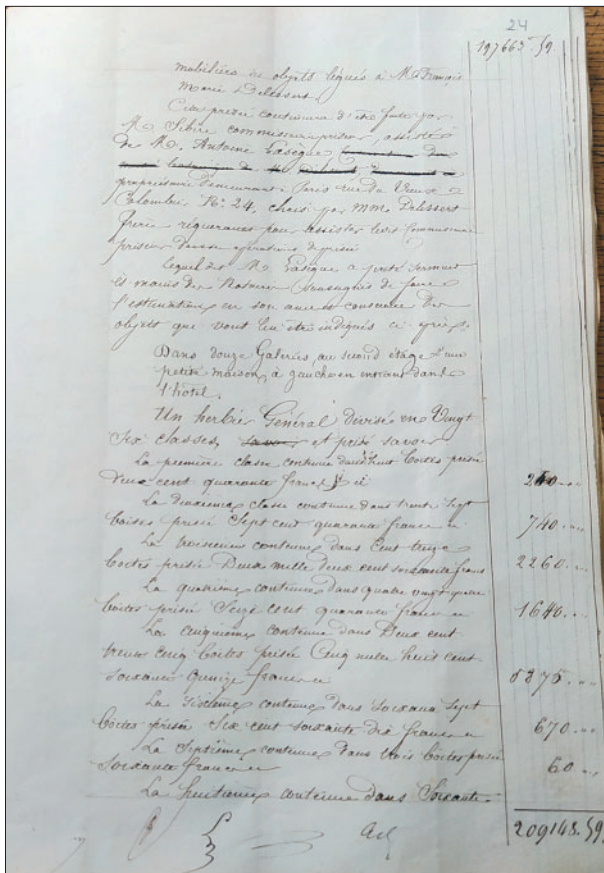 24
197663 59.
mobiliers de objets légués à M. François
Marie Delessert
Cette prisée continuera d'être faite par
M. Sibire commissaire priseur, assisté
de M. Antoine Lasègue
propriétaire demeurant à Paris rue du Vieux
Colombier No. 24, choisi par MM. Delessert
frères requérants pour assister ledit Commissaire
priseur dans ses opérations de prisée
Lequel dit M. Lasègue a prêté serment
ès mains des Notaires soussignés de faire
l'estimation en son âme et conscience des
objets que vont lui être indiqués ci après.
Dans douze Galeries, au second étage d'une
petite maison, à gauche en entrant dans
l'hôtel.
Un herbier Général divisé en Vingt
Six classes, savoir et prisé savoir
La première classe contenue dans huit boites prisée
deux cent quarante francs ci 240
La deuxième classe contenue dans trente sept
boites prisée Sept cent quarante francs ci 740
La troisième contenue dans Cent treize
boites prisée Deux mille deux cent soixante francs 2260
La quatrième contenue dans quatre vingt
boites prisée Seize cent quarante francs ci 1640
La cinquième contenue dans Deux cent
trente cinq boites prisée Cinq mille huit cent
soixante quinze francs ci 5875
La sixième contenue dans soixante sept
boites prisée Six cent soixante dix francs ci 670
La Septième contenue dans trois boites prisée
soixante francs ci 60
La huitième contenue dans Soixante
209148.59